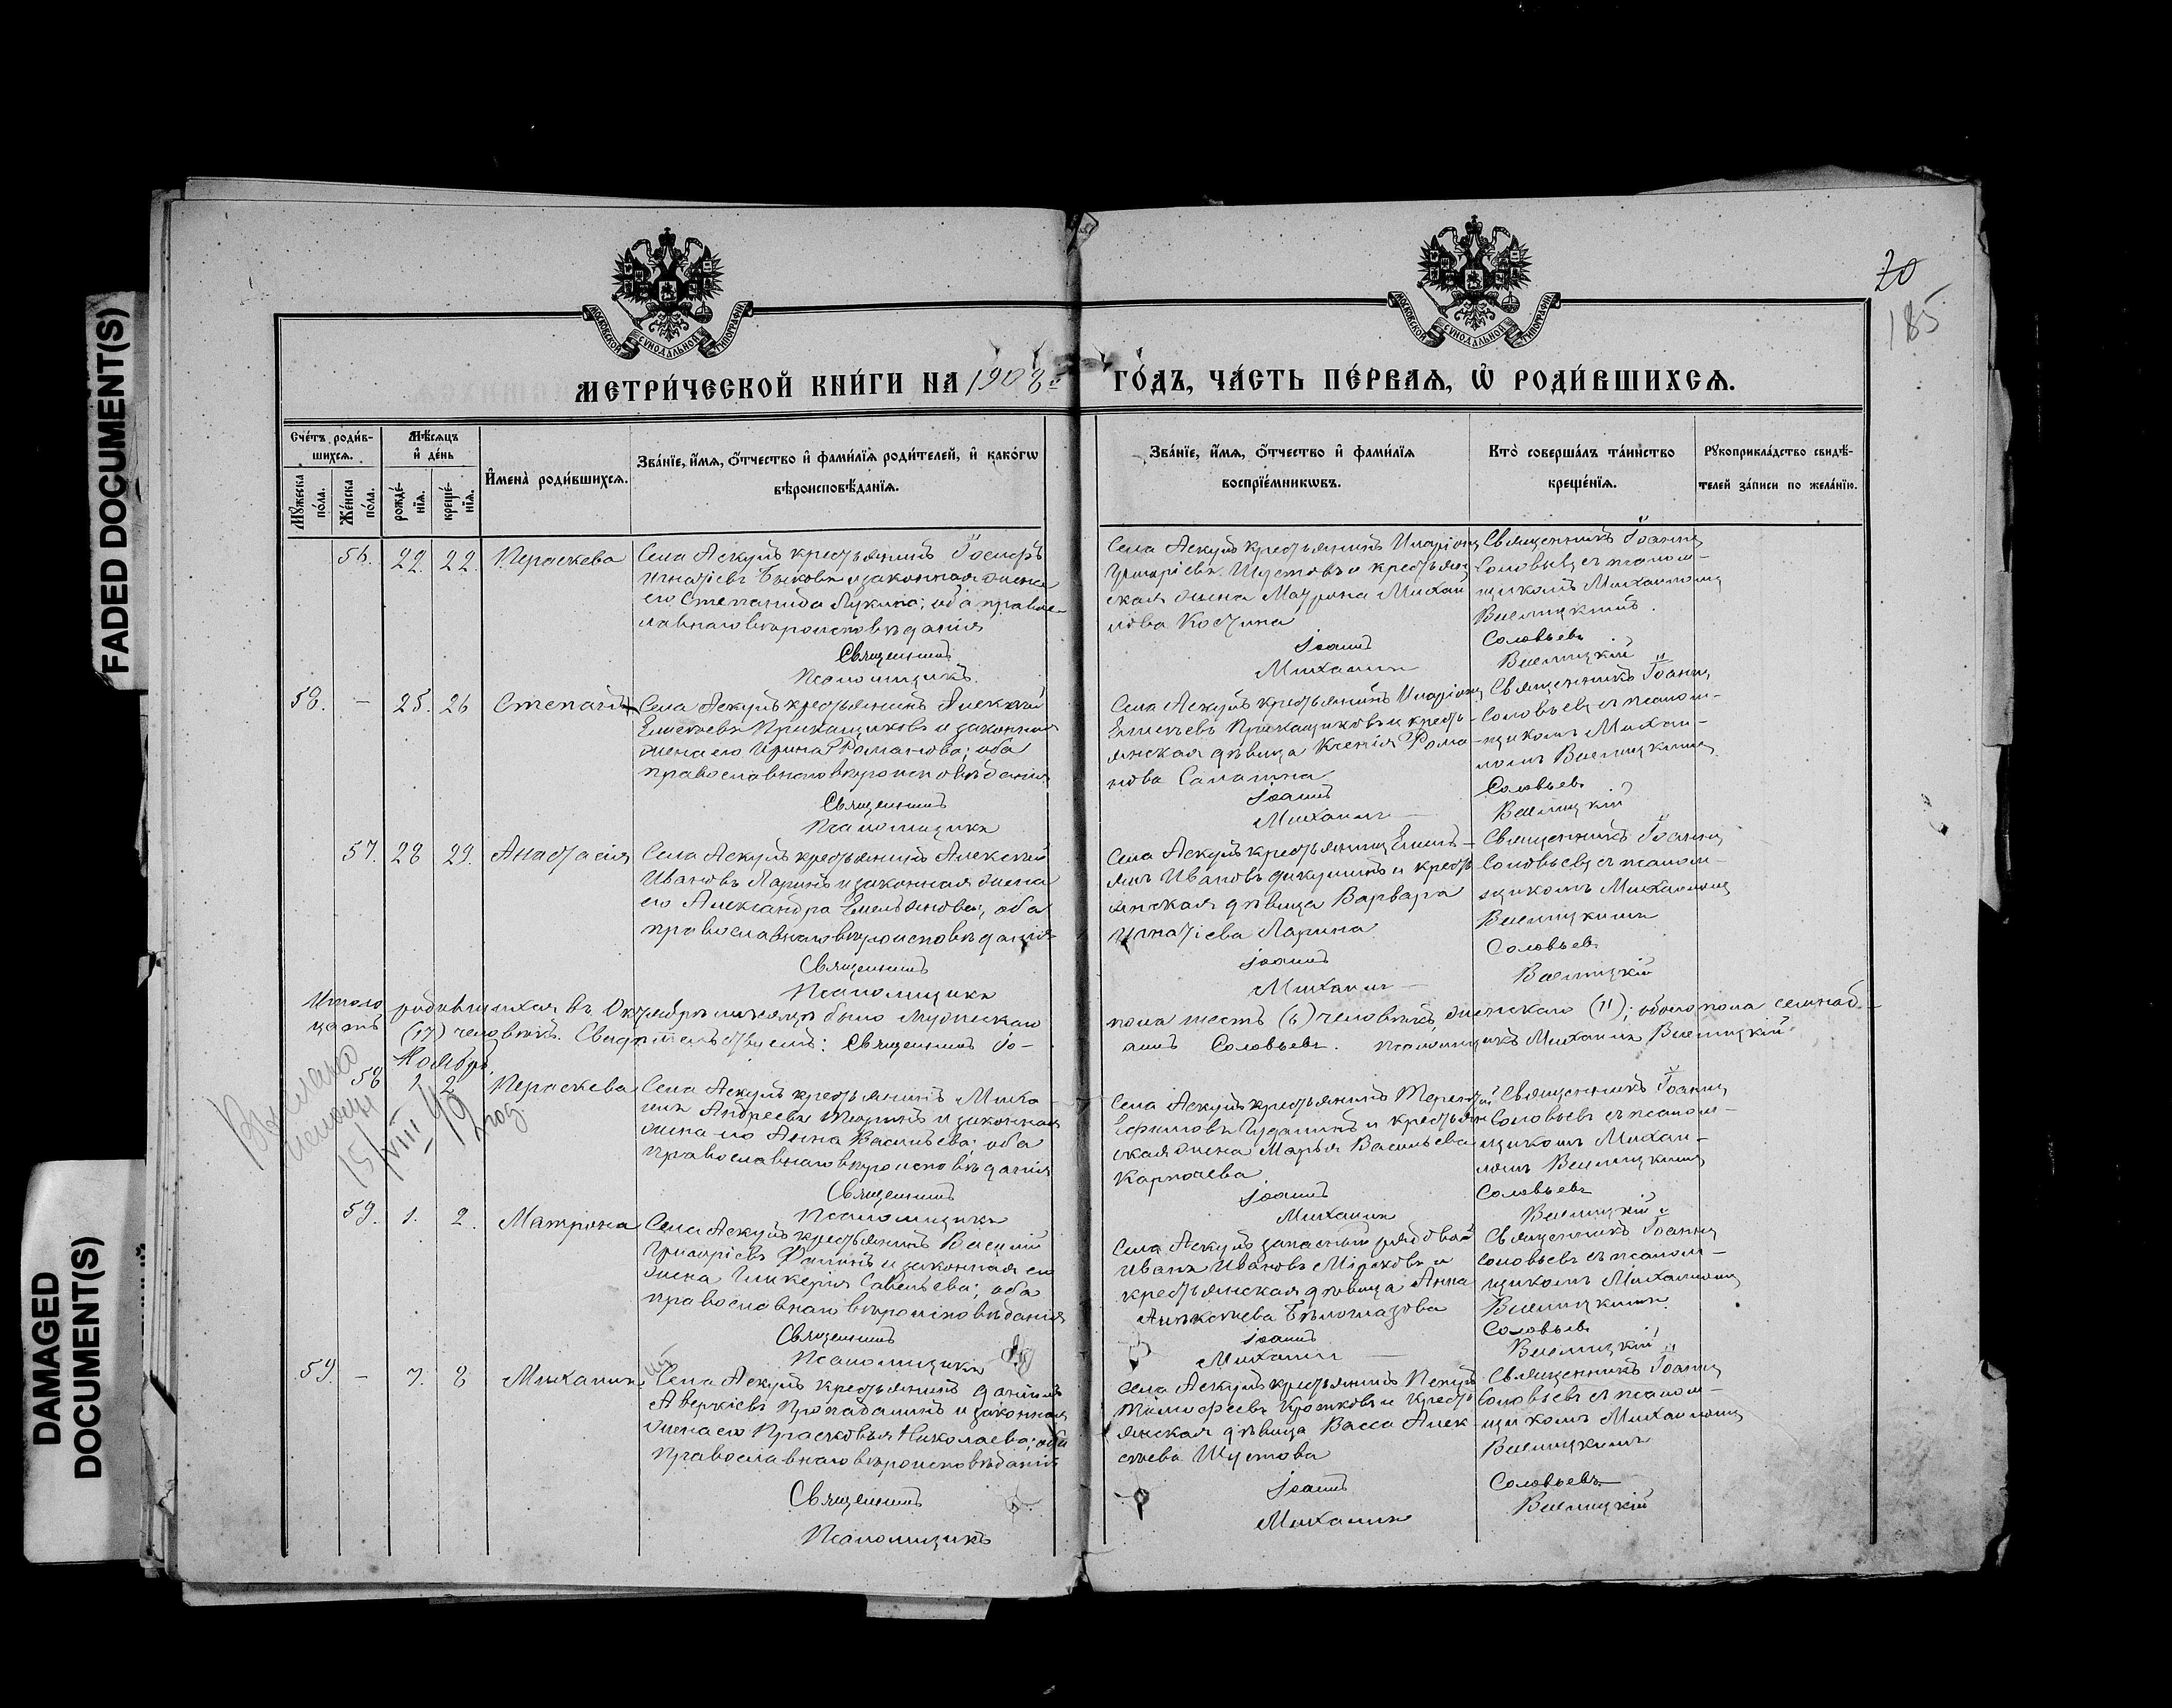 FADED DOCUMENT(S)
DAMAGED
DOCUMENT(S)
МОСКОВСКОЙ СУНОДАЛЬНОЙ ТИПОГРАФІИ
МОСКОВСКОЙ СУНОДАЛЬНОЙ ТИПОГРАФІИ
20
185
МЕТРИ́ЧЕСКОЙ КНИ́ГИ НА 1908й ГО́ДЪ, ЧА́СТЬ ПЕ́РВАЯ, Ѡ РОДИ́ВШИХСѦ.
Сче́тъ роди́в-
шихсѧ.
Мѣ́сѧцъ
и де́нь
Мꙋ́жеска
по́ла.
Же́нска
по́ла.
рожде́-
нїѧ.
креще́-
нїѧ.
Имена̀ роди́вшихсѧ.
Зва́нїе, и́мѧ, ѻ́тчество и фами́лїѧ роди́телей, и како́гѡ
вѣроисповѣ́данїѧ.
Зва́нїе, и́мѧ, ѻ́тчество и фами́лїѧ
воспрїе́мникѡвъ.
Кто̀ соверша́лъ та́инство
креще́нїѧ.
Рꙋкоприкла́дство свидѣ́-
телей за́писи по жела́нїю.
56. 22. 22. Параскева
Села Аскулъ крестьянинъ Іосифъ
Игнатіевъ Быковъ и законная жена
его Степанида Лукина; оба правос-
лавнаго вѣроисповѣданія
Священникъ
Псаломщикъ.
Села Аскулъ крестьянинъ Иларіонъ
Григоріевъ Шустовъ и крестьян
ская жена Матрона Михаи
лова
Іоаннъ
Михаилъ
Священникъ Іоаннъ
Соловьевъ съ псалом-
щикомъ Михаиломъ
Виелицкимъ.
Соловьевъ
Виелицкій
58. - 25. 26 Степанъ
Села Аскулъ крестьянинъ Алексѣй
Елисеевъ Прикащиковъ и законная
жена его Ирина Романова; оба
православнаго вѣроисповѣданія
Священникъ
Псаломщикъ
Села Аскулъ крестьянинъ Иларіонъ
Елисеевъ Прикащиковъ и кресть-
янская дѣвица Ксенія Рома-
нова
Іоаннъ
Михаилъ
Священникъ Іоаннъ
Соловьевъ съ псалом-
щикомъ Михаи-
ломъ Виелицкимъ
Соловьевъ
Виелицкій
57. 28 29. Анастасія
Села Аскулъ крестьянинъ Алексѣй
Ивановъ Ларинъ и законная жена
его Александра Емельянова; оба
православнаго вѣроисповѣданія
Священникъ
Псаломщикъ
Села Аскулъ крестьянинъ Емель-
янъ Ивановъ и кресть
янская дѣвица Варвара
Игнатіева Ларина
Іоаннъ
Михаилъ
Священникъ Іоаннъ
Соловьевъ съ псалом-
щикомъ Михаиломъ
Виелицкимъ
Соловьевъ
Виелицкій
Итого родившихся въ Октябрѣ мѣсяцѣ было мужескаго пола шесть (6) человѣкъ, женскаго (11); обоего пола семнад-
цать (17) человѣкъ. Свидѣтельствуемъ: Священникъ Іо- аннъ Соловьевъ. Псаломщикъ Михаилъ Виелицкій
Ноябрь.
15/VIII 42 год
58 1 2 Параскева
Села Аскулъ крестьянинъ Миха
илъ Андреевъ и законная
жена его Анна Васильева; оба
православнаго вѣроисповѣданія
Священникъ
Псаломщикъ
Села Аскулъ крестьянинъ Терентій
Ефимовъ и крестьян
ская жена Марья Васильева
Іоаннъ
Михаилъ
Священникъ Іоаннъ
Соловьевъ съ псалом-
щикомъ Михаи-
ломъ Виелицкимъ
Соловьевъ
Виелицкій
59. 1. 2. Матрона
Села Аскулъ крестьянинъ Василій
Григорьевъ и законная его
жена Гликерія Савельева; оба
православнаго вѣроисповѣданія
Священникъ
Псаломщикъ
Села Аскулъ запасный рядовой
Иванъ Ивановъ и
крестьянская дѣвица Анна
Алексѣева Бѣлоглазова
Іоаннъ
Михаилъ
Священникъ Іоаннъ
Соловьевъ съ псалом-
щикомъ Михаиломъ
Виелицкимъ.
Соловьевъ
Виелицкій
59. - 7. 8 Михаилъ
Села Аскулъ крестьянинъ Даніилъ
Аверкіевъ и законная
жена его Прасковья Николаева; оба
православнаго вѣроисповѣданія
Священникъ
Псаломщикъ
Села Аскулъ крестьянинъ
Тимофеевъ и кресть
янская дѣвица Васса Алек-
сѣева Шустова
Іоаннъ
Михаилъ
Священникъ Іоаннъ
Соловьевъ съ псалом-
щикомъ Михаиломъ
Виелицкимъ
Соловьевъ
Виелицкій